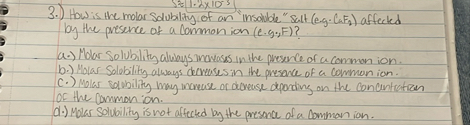 S = 1.2x10⁻³
3.) How is the molar Solubility of an "insoluble" salt (e.g. CaF₂) affected
by the presence of a Common ion (e.g., F)?
a.) Molar Solubility always increases in the presence of a common ion.
b.) Molar Solubility always decreases in the presence of a common ion.
c.) Molar solubility may increase or decrease depending on the concentration
of the common ion.
d.) Molar Solubility is not affected by the presence of a Common ion.